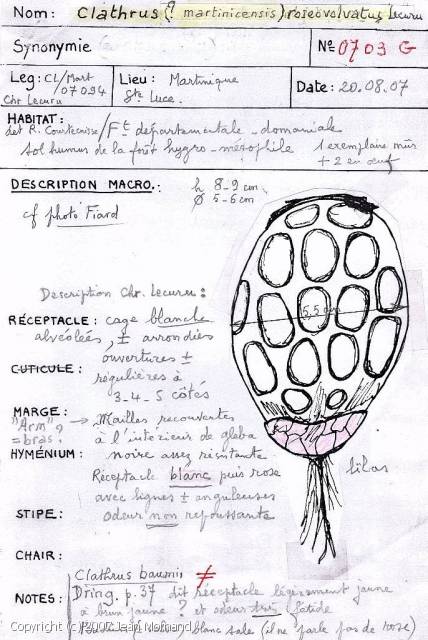 Nom: Clathrus (? martinicensis) roseovolvatus Lecuru
Synonymie
N° 0703 G
Leg: CL/Mart
07094
Chr Lecuru
Lieu: Martinique
Ste Luce.
Date: 20.08.07
HABITAT:
det R. Courtecuisse / Ft départementale-domaniale
sol humus de la forêt hygro-mésophile
1 exemplaire mûr
+ 2 en œuf
DESCRIPTION MACRO.:
h 8-9 cm
Ø 5-6 cm
cf photo Fiard
Description Chr. Lecuru:
RÉCEPTACLE: cage blanche
alvéolées, ± arrondies
ouvertures ±
CUTICULE:
régulières à
3-4-5 côtés
MARGE:
"Arm",
= bras.
→ Mailles recouvertes
à l'intérieur de gleba
HYMÉNIUM: noire assez résistante
Réceptacle blanc puis rose
avec lignes ± anguleuses
STIPE: odeur non repoussante
5,5 cm
lilas
CHAIR:
NOTES:
Clathrus baumii ≠
Dring. p. 37 dit réceptacle légèrement jaune
à brun jaune ? et odeur fétide
Copyright (c) 2007 Jean Mornand blanc sale (il ne parle pas de rose)